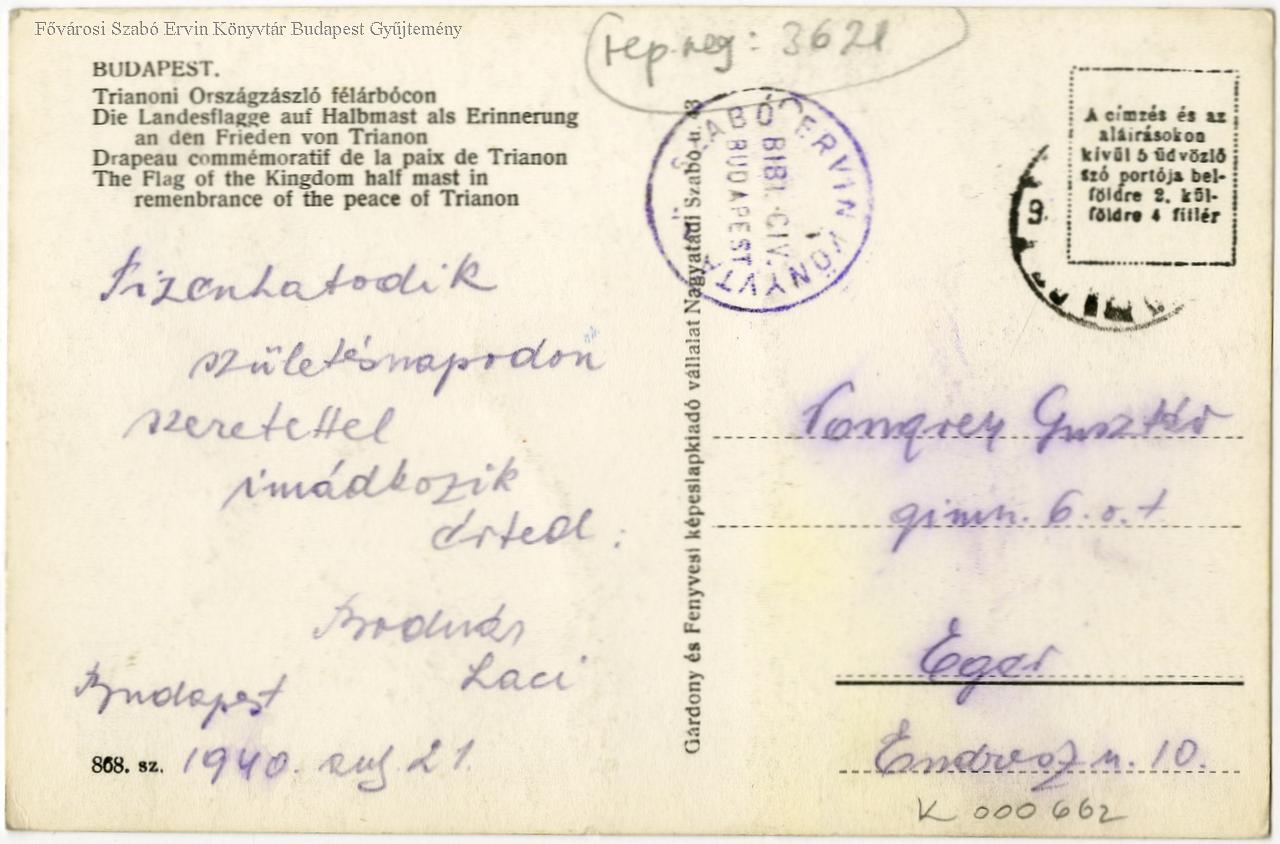 Fővárosi Szabó Ervin Könyvtár Budapest Gyűjtemény
rep. neg: 3621
BUDAPEST.
Trianoni Országzászló félárbócon
Die Landesflagge auf Halbmast als Erinnerung
an den Frieden von Trianon
Drapeau commémoratif de la paix de Trianon
The Flag of the Kingdom half mast in
remenbrance of the peace of Trianon
Tizenhatodik
születésnapodon
szeretettel
imádkozik
érted.
Bodnár
Laci
Budapest
868. sz.
1940. aug 21.
Gárdony és Fenyvesi képeslapkiadó vállalat Nagyatádi Szabó u. 43
SZABÓ ERVIN KÖNYVTÁR
BIBL. CIV.
BUDAPEST
A címzés és az
aláírásokon
kívül 5 üdvözlő
szó portója bel-
földre 2. kül-
földre 4 fillér
9.
Gusztáv
gimn. 6. o. t
Eger
u. 10.
K 000 662